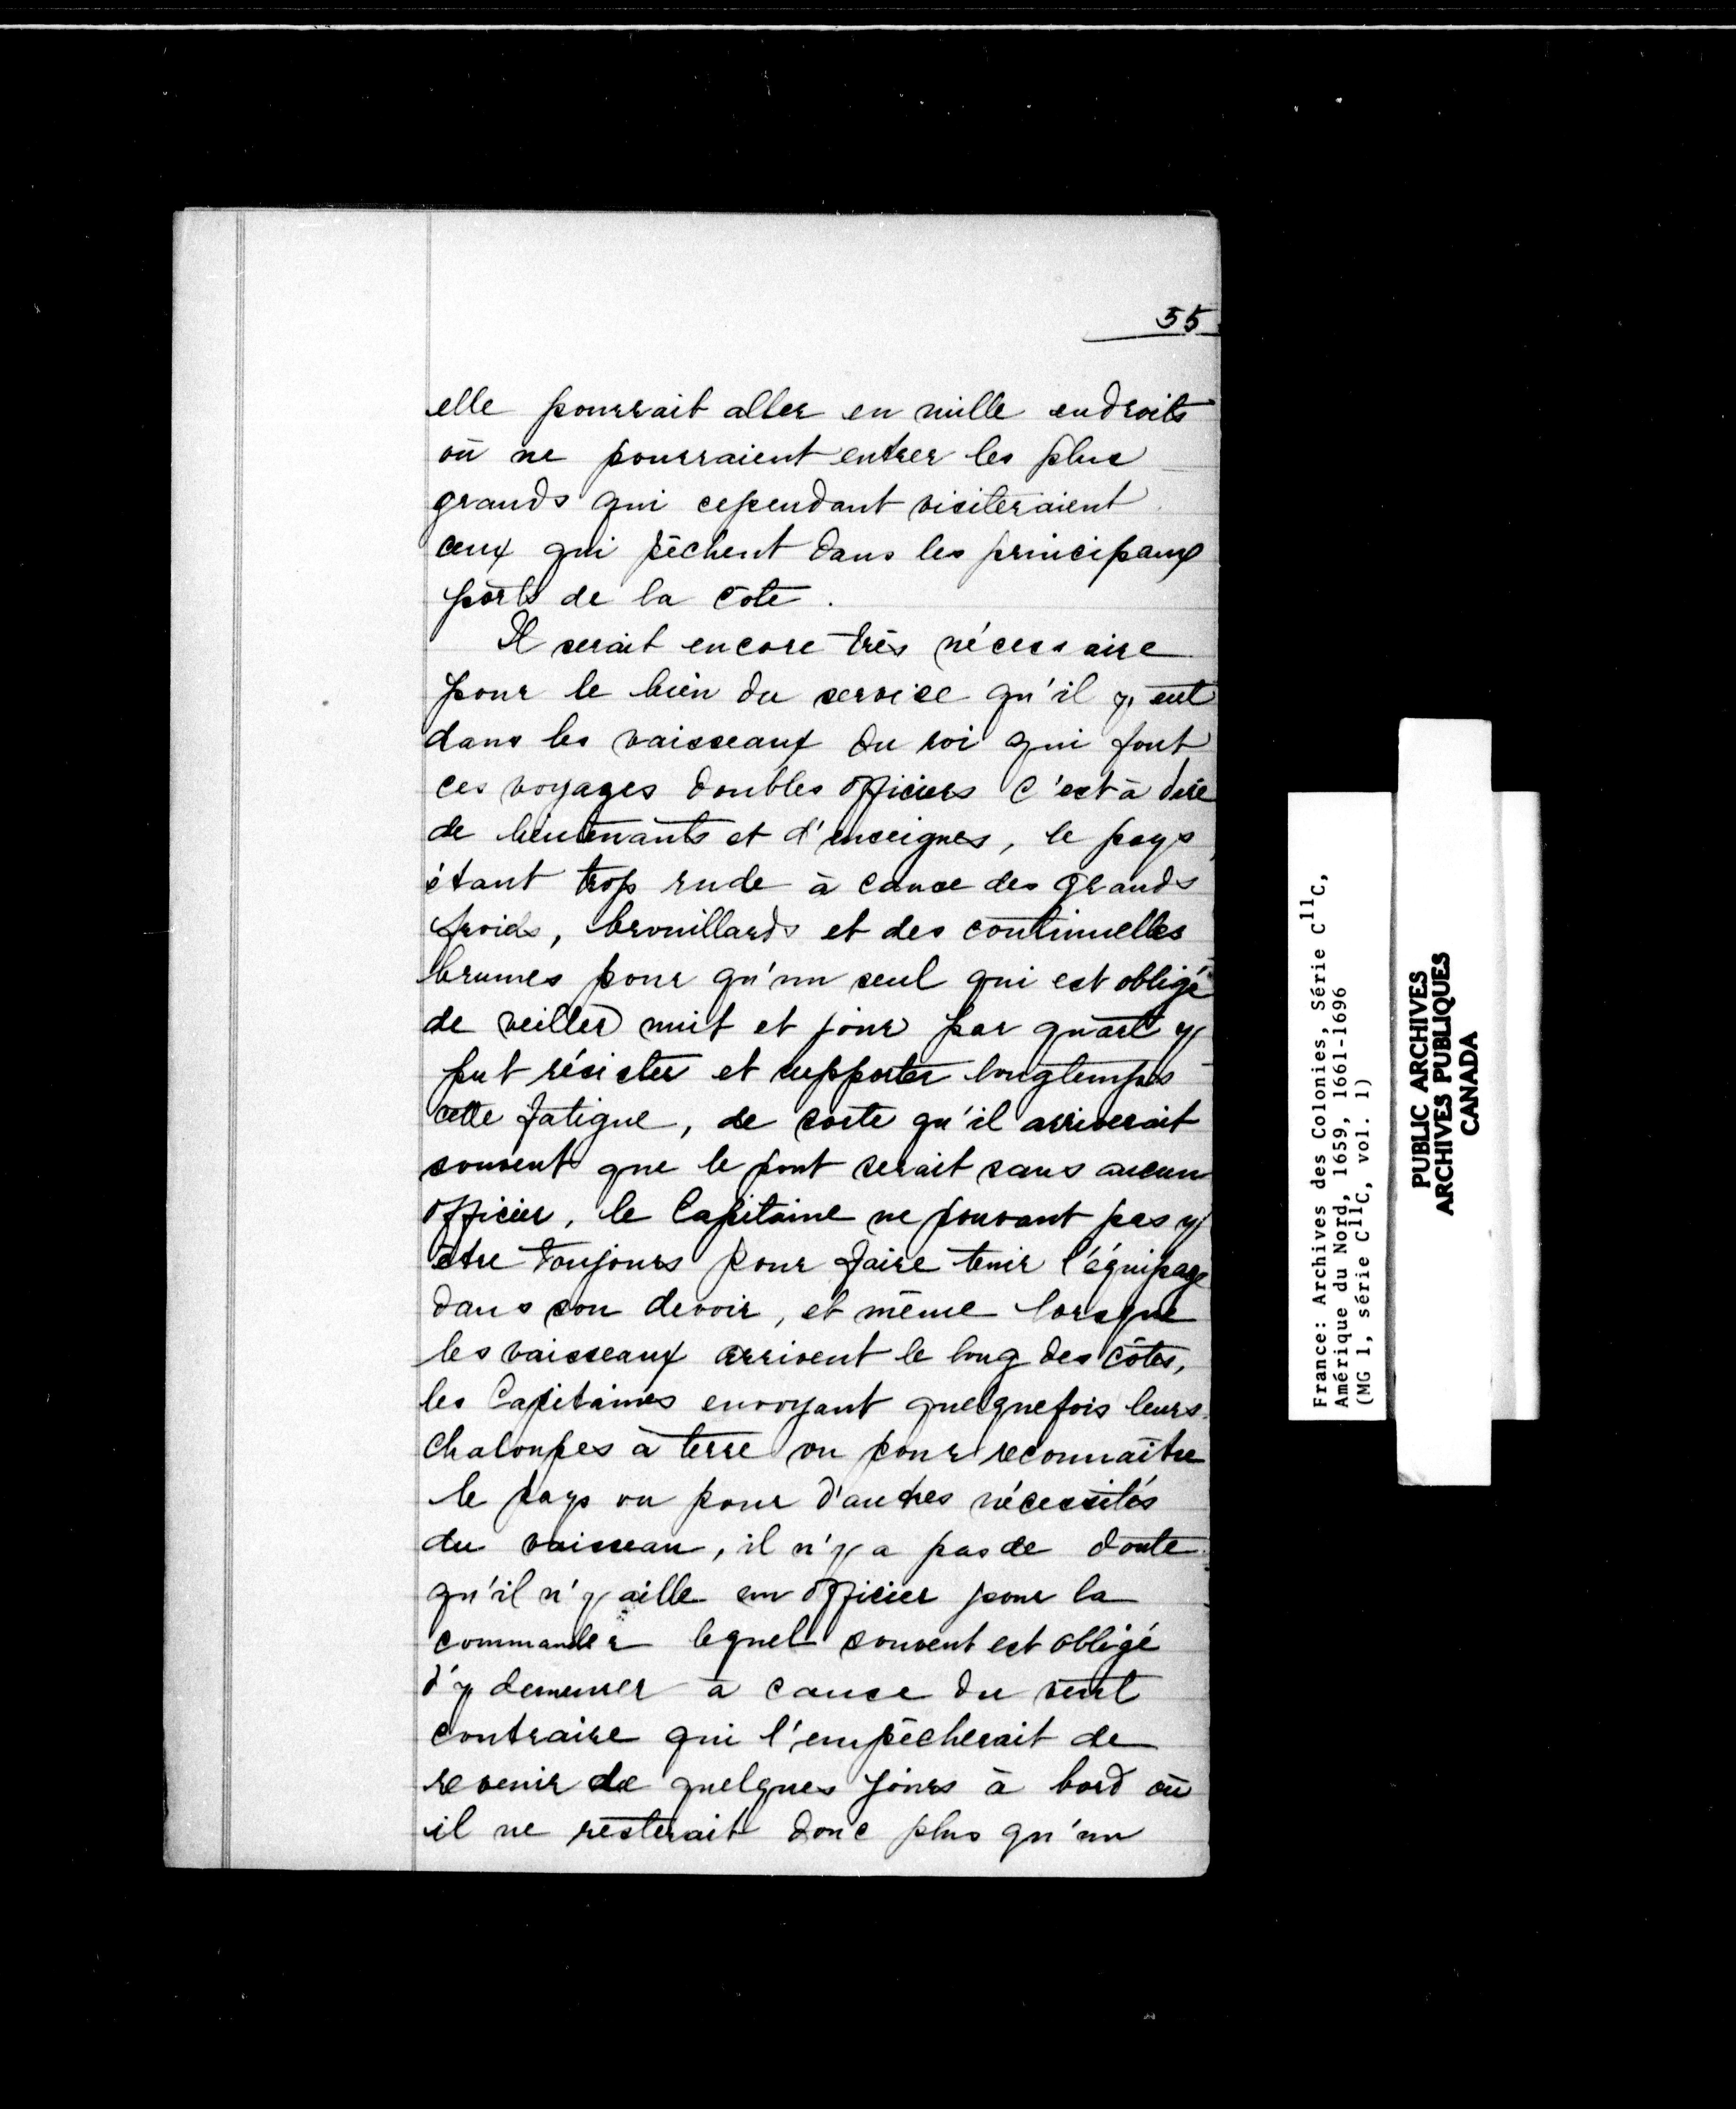 55
elle pourrait aller en mille endroits
où ne pourraient entrer les plus
grands qui cependant visiteraient
ceux qui pêchent dans les principaux
ports de la côte.
Il serait encore très nécessaire
pour le bien du service qu'il y eut
dans les vaisseaux du roi qui font
ces voyages doubles officiers c'est à dire
de lieutenants et d'enseignes, le pays
étant trop rude à cause des grands
froids, brouillards et des continuelles
brumes pour qu'un seul qui est obligé
de veiller nuit et jour par quart y
put résister et supporter longtemps
cette fatigue, de sorte qu'il arriverait
souvent que le pont serait sans aucun
officier, le Capitaine ne pouvant pas y
être toujours pour faire tenir l'équipage
dans son devoir, et même lorsque
les vaisseaux arrivent le long des côtes,
les Capitaines envoyant quelquefois leurs
chaloupes à terre ou pour reconnaître
le pays ou pour d'autres nécessités
du vaisseau, il n'y a pas de doute
qu'il n'y aille un officier pour la
commander lequel souvent est obligé
d'y demeurer à cause du vent
contraire qui l'empêcherait de
revenir de quelques jours à bord où
il ne resterait donc plus qu'un
France: Archives des Colonies, Série C11C,
Amérique du Nord, 1659, 1661-1696
(MG 1, série C11C, vol. 1)
PUBLIC ARCHIVES
ARCHIVES PUBLIQUES
CANADA